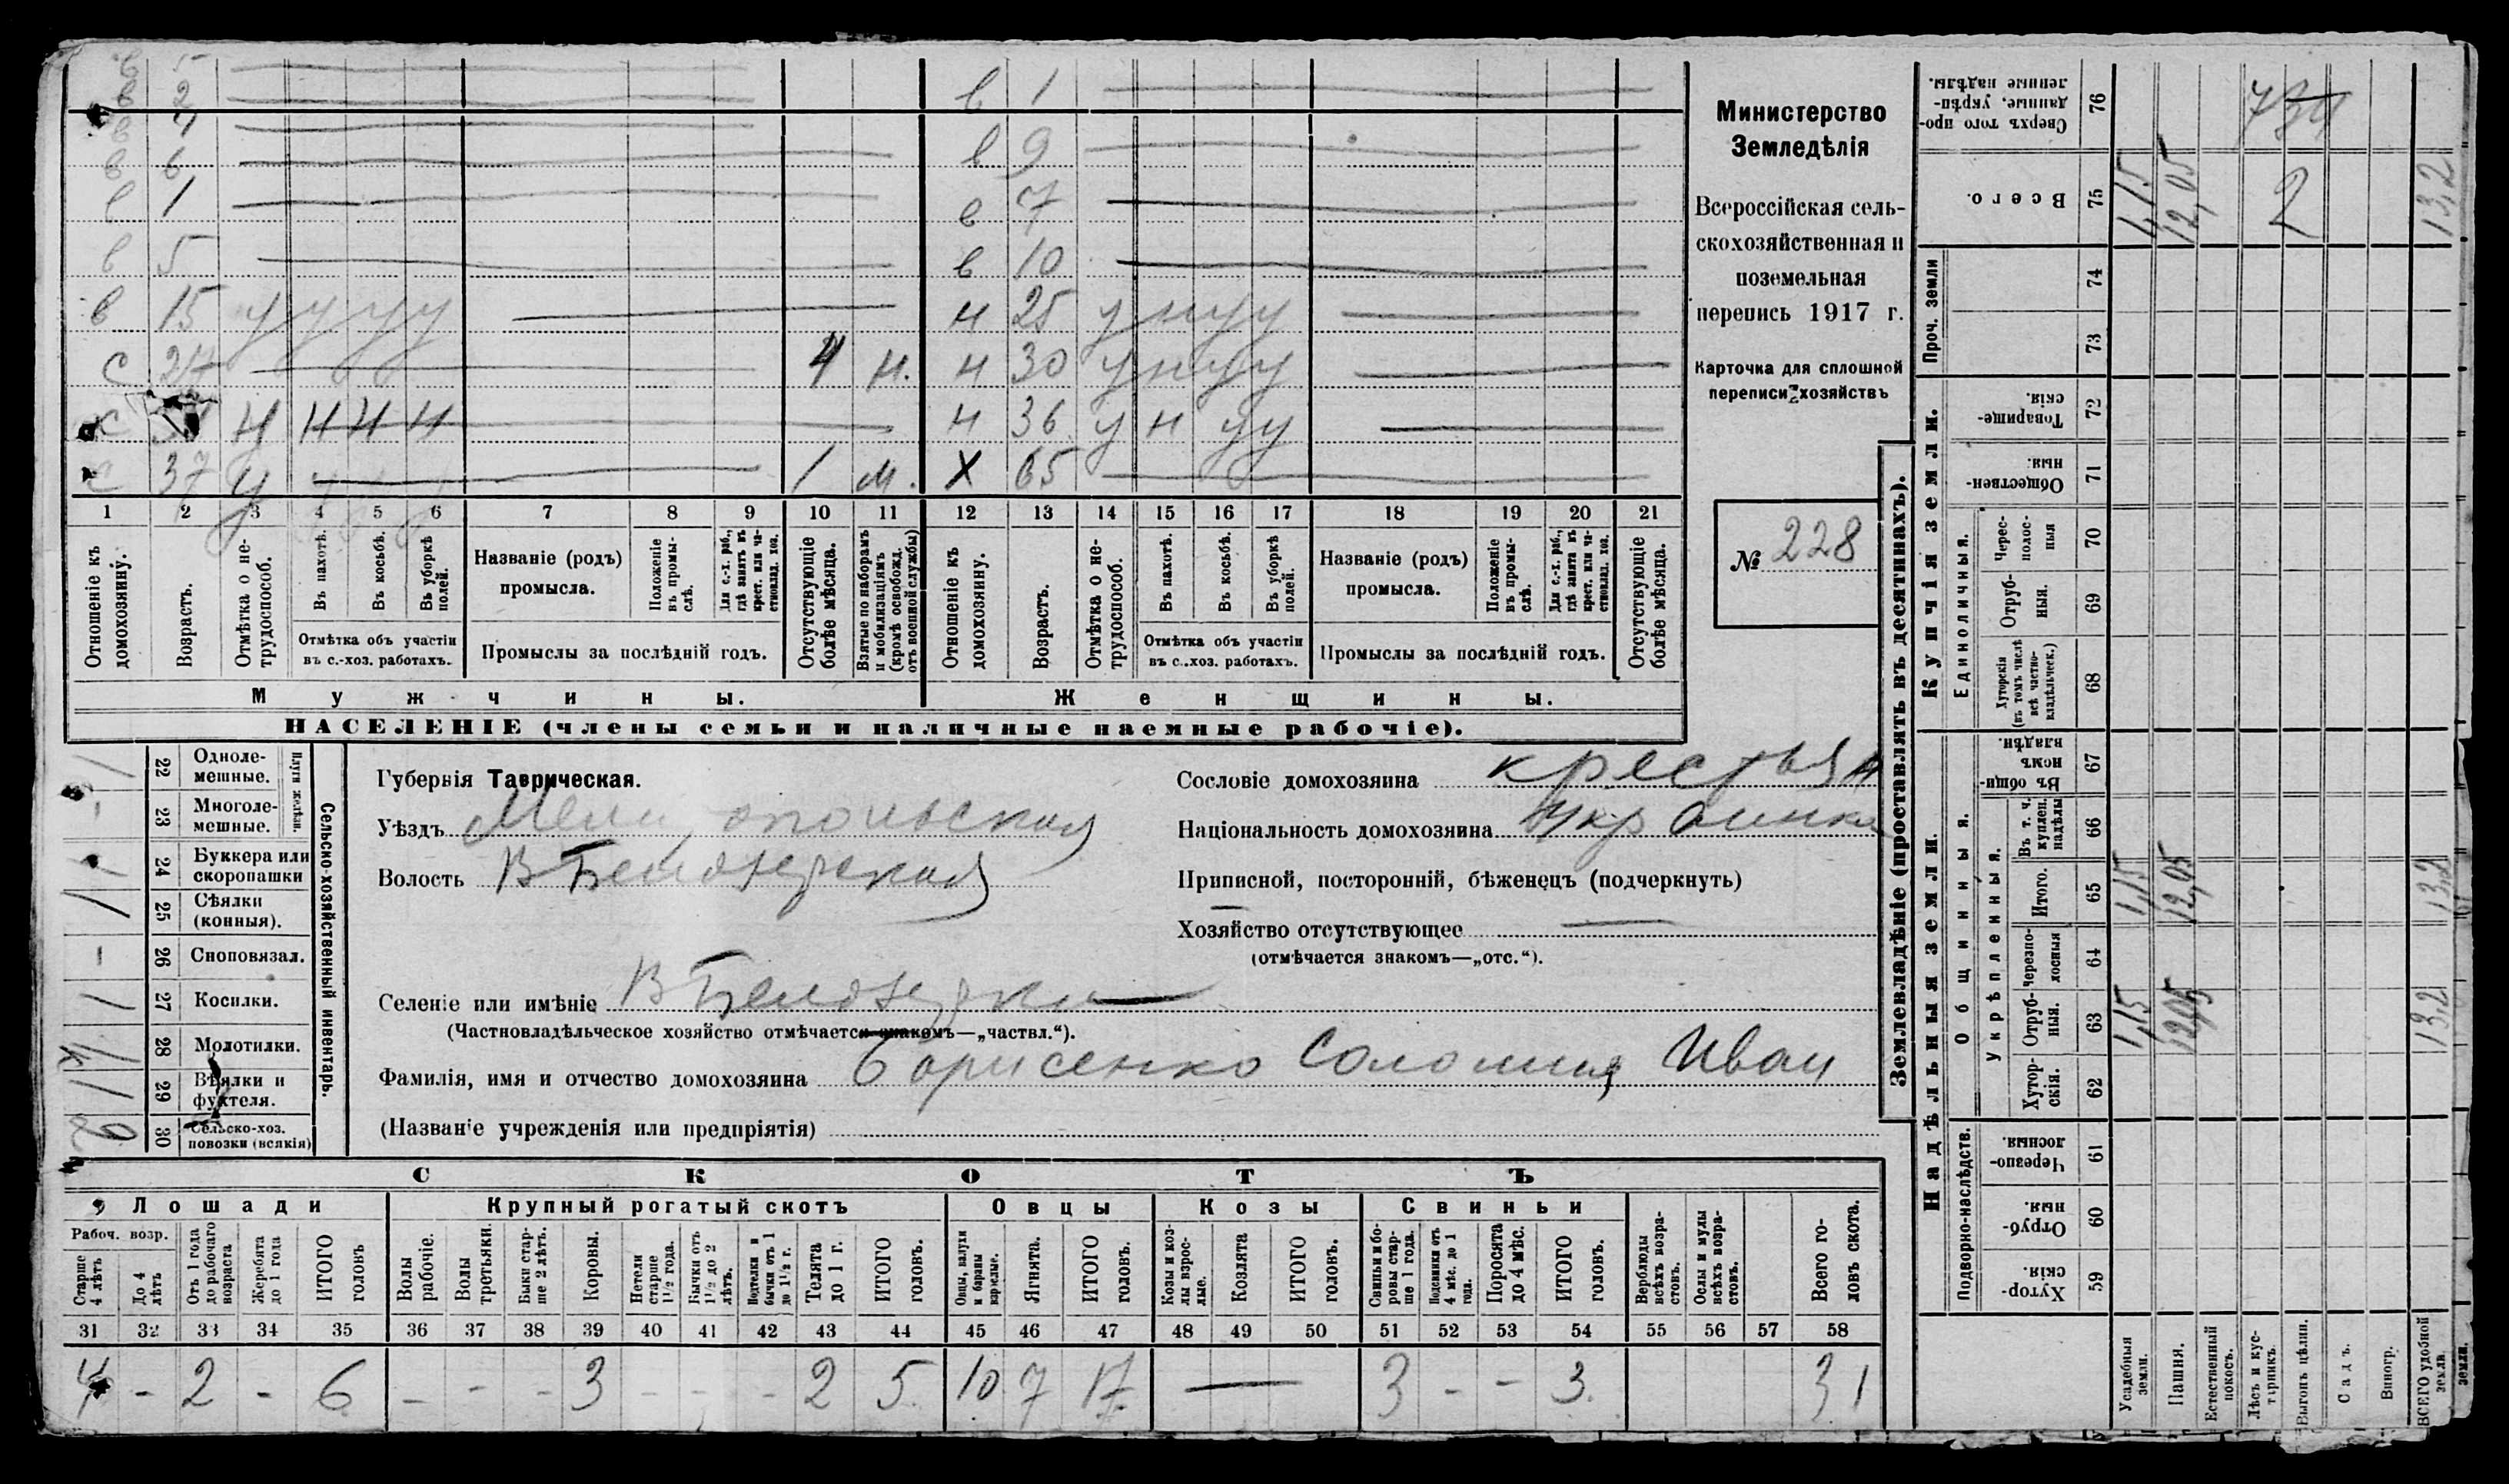 в 5
в 2
в 7
в 6
в 1
в 5
в 15 у у у у
с 27 4 н.
к н н н н
с 37 у 1 м.
в 1
в 9
в 7
в 10
н 25 у н у у
н 30 у н у у
н 36 у н у у
х 65
1 2 3 4 5 6 7 8 9 10 11 12 13 14 15 16 17 18 19 20 21
Отношеніе къ домохозяину.
Возрастъ.
Отмѣтка о не-
трудоспособ.
Въ пахотѣ.
Въ косьбѣ.
Въ уборкѣ полей.
Отмѣтка объ участіи
въ с.-хоз. работахъ.
Названіе (родъ)
промысла.
Положеніе въ промы-
слѣ.
Для с.-х. раб., гдѣ занятъ въ крест. или ча-
стновлад. хоз.
Промыслы за послѣдній годъ.
Отсутствующіе болѣе мѣсяца.
Взятые по наборамъ и мобилизаціямъ (кромѣ освобожд. отъ военной службы)
Отношеніе къ домохозяину.
Возрастъ.
Отмѣтка о не-
трудоспособ.
Въ пахотѣ.
Въ косьбѣ.
Въ уборкѣ полей.
Отмѣтка объ участіи
въ с.-хоз. работахъ.
Названіе (родъ)
промысла.
Положеніе въ промы-
слѣ.
Для с.-х. раб., гдѣ занятъ въ крест. или ча-
стновлад. хоз.
Промыслы за послѣдній годъ.
Отсутствующіе болѣе мѣсяца.
Мужчины.
Женщины.
НАСЕЛЕНІЕ (члены семьи и наличные наемные рабочіе).
Министерство
Земледѣлія
Всероссійская сель-
скохозяйственная и
поземельная
перепись 1917 г.
Карточка для сплошной
переписи хозяйствъ
№ 228
22 Одноле-
мешные.
23 Многоле-
мешные.
Плуги желѣзн.
24 Буккера или
скоропашки
25 Сѣялки
(конныя).
26 Сноповязал.
27 Косилки.
28 Молотилки.
29 Вѣялки и
фухтеля.
30 Сельско-хоз.
повозки (всякія)
2
Сельско-хозяйственный инвентарь.
Губернія Таврическая.
Уѣздъ Мелитопольская
Волость В Белозерская
Селеніе или имѣніе В Белозерка
(Частновладѣльческое хозяйство отмѣчается знакомъ—„частвл.“).
Фамилія, имя и отчество домохозяина Борисенко Соломия Иван
(Названіе учрежденія или предпріятія)
Сословіе домохозяина крестьян
Національность домохозяина Украинка
Приписной, посторонній, бѣженецъ (подчеркнуть)
Хозяйство отсутствующее
(отмѣчается знакомъ—„отс.“).
СКОТЪ
Лошади
Крупный рогатый скотъ
Овцы
Козы
Свиньи
Рабоч. возр.
Старше 4 лѣтъ
До 4 лѣтъ
Отъ 1 года до рабочаго возраста
Жеребята до 1 года
ИТОГО головъ
Волы рабочіе.
Волы третьяки.
Быки стар-
ше 2 лѣтъ.
Коровы.
Нетели старше 1½ года.
Бычки отъ 1½ до 2 лѣтъ.
Нетелки и бычки отъ 1 до 1½ г.
Телята до 1 г.
ИТОГО головъ.
Овцы, валухи и бараны взрослые.
Ягнята.
ИТОГО головъ.
Козы и коз-
лы взрос-
лые.
Козлята
ИТОГО головъ.
Свиньи и бо-
ровы стар-
ше 1 года.
Подсвинки отъ 4 мѣс. до 1 года.
Поросята до 4 мѣс.
ИТОГО головъ.
Верблюды всѣхъ возра-
стовъ.
Ослы и мулы всѣхъ возра-
стовъ.
Всего го-
ловъ скота.
31 32 33 34 35 36 37 38 39 40 41 42 43 44 45 46 47 48 49 50 51 52 53 54 55 56 57 58
4 - 2 - 6 - - - 3 - - - 2 5 10 7 17 — 3 - - 3 31
Землевладѣніе (проставлять въ десятинахъ).
Надѣльныя земли.
Купчія земли.
Проч. земли
Подворно-наслѣдств.
Общинныя.
Укрѣпленныя.
Единоличныя.
Хутор-
скія. 59
Отруб-
ныя. 60
Черезпо-
лосныя. 61
Хутор-
скія. 62
Отруб-
ныя. 63
Черезпо-
лосныя 64
Итого. 65
Въ т. ч. куплен. надѣлы 66
Въ общин-
номъ владѣн. 67
Хуторскія (въ томъ числѣ всѣ частно-
владѣльческ.) 68
Отруб-
ныя. 69
Черес-
полос-
ныя 70
Обществен-
ныя. 71
Товарище-
скія. 72
73
74
Всего. 75
Сверхъ того про-
данные, укрѣп-
ленные надѣлы. 76
Усадебныя земли.
Пашня.
Естественный покосъ.
Лѣсъ и кус-
тарникъ.
Выгонъ цѣлин.
Садъ.
Виногр.
ВСЕГО удобной земли.
1,15 12,05 13,2
1,15 12,05 13,2
1,15 12,05 2 13,2
734